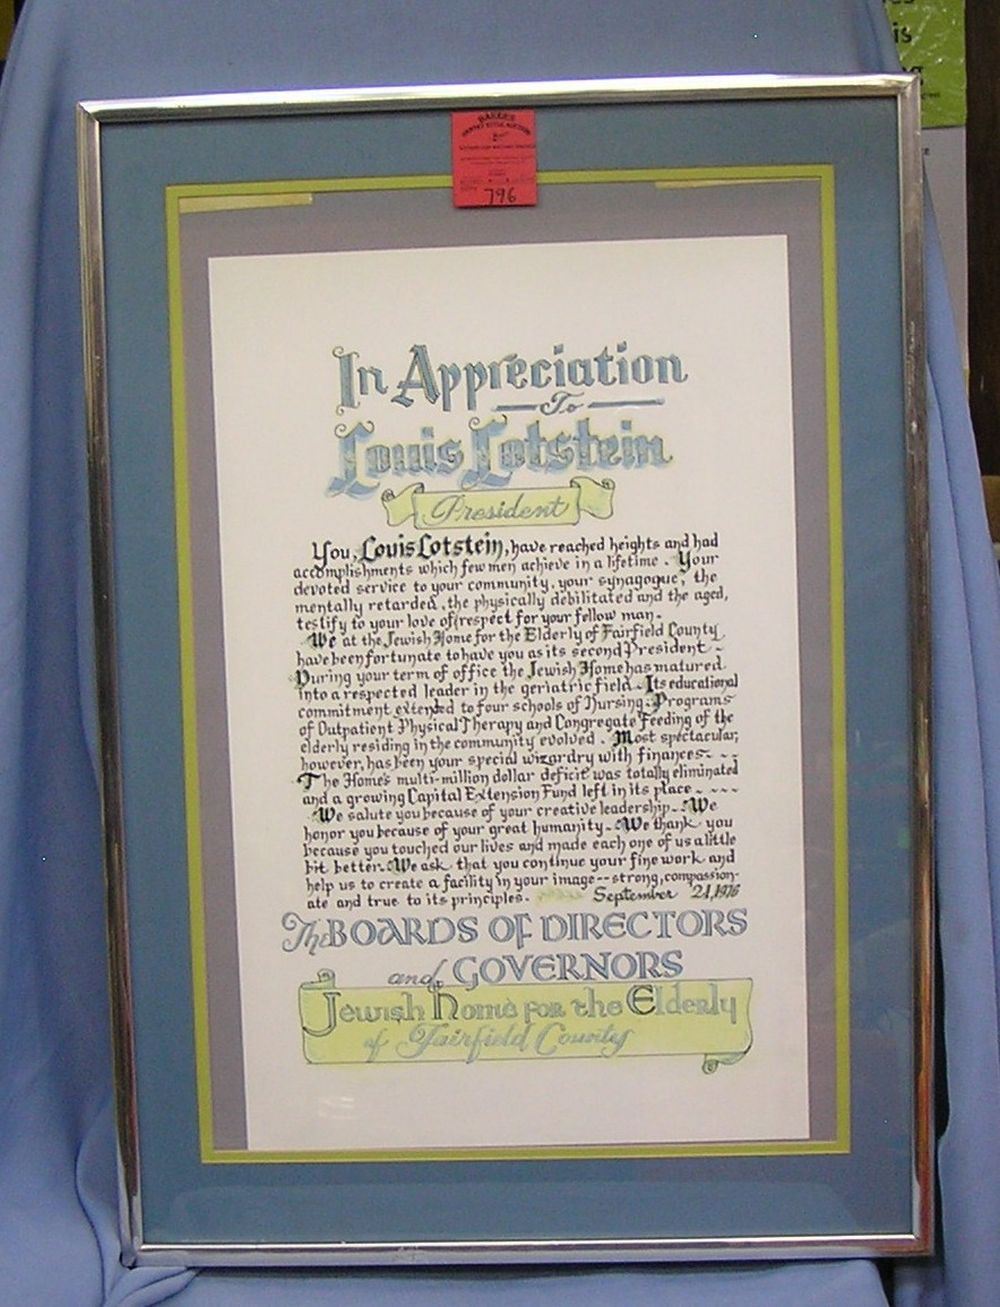 is
BAKER'S
796
In Appreciation
To
Louis Lotstein
President
You, Louis Lotstein, have reached heights and had
accomplishments which few men achieve in a lifetime. Your
devoted service to your community, your synagogue, the
mentally retarded, the physically debilitated and the aged,
testify to your love of/respect for your fellow man.
We at the Jewish Home for the Elderly of Fairfield County
have been fortunate to have you as its second President-
During your term of office the Jewish Home has matured
into a respected leader in the geriatric field. Its educational
commitment extended to four schools of Nursing. Programs
of Outpatient Physical Therapy and Congregate Feeding of the
elderly residing in the community evolved. Most spectacular,
however, has been your special wizardry with finances- - -
The Home's multi-million dollar deficit was totally eliminated
and a growing Capital Extension Fund left in its place - - - -
We salute you because of your creative leadership-. We
honor you because of your great humanity-. We thank you
because you touched our lives and made each one of us a little
bit better. We ask that you continue your fine work and
help us to create a facility in your image--strong, compassion-
ate and true to its principles. September 21, 1976
The BOARDS OF DIRECTORS
and GOVERNORS
Jewish Home for the Elderly
of Fairfield County